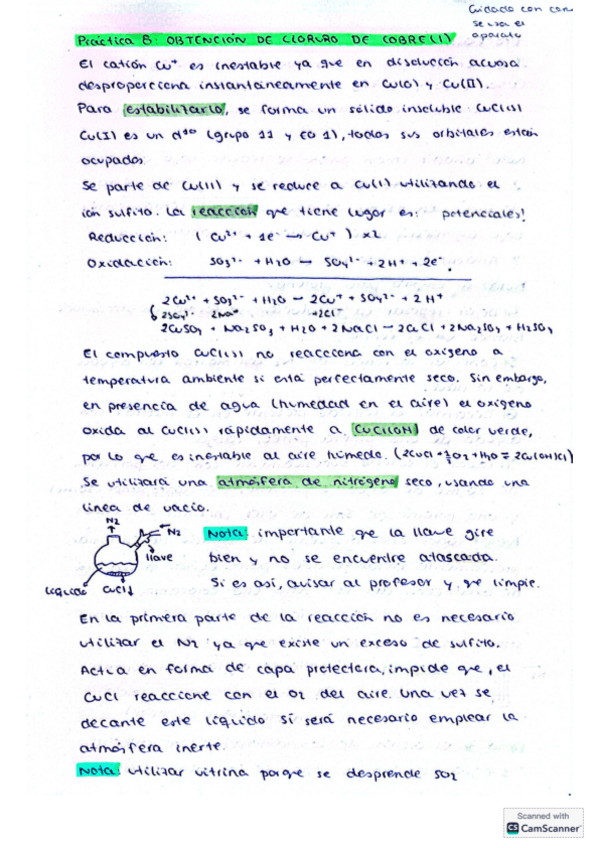 Cuidado con como
se usa el
aparato
Práctica 8: OBTENCIÓN DE CLORURO DE COBRE (I)
El catión Cu⁺ es inestable ya que en disolución acuosa
desproporciona instantáneamente en Cu(0) y Cu(II).
Para estabilizarlo, se forma un sólido insoluble CuCl(s)
Cu(I) es un d¹⁰ (grupo 11 y EO 1), todos sus orbitales están
ocupados.
Se parte de Cu(II) y se reduce a Cu(I) utilizando el
ión sulfito. La reacción que tiene lugar es: potenciales!
Reducción: (Cu²⁺ + 1e⁻ → Cu⁺) x2
Oxidación: SO₃²⁻ + H₂O → SO₄²⁻ + 2H⁺ + 2e⁻
2Cu²⁺ + SO₃²⁻ + H₂O → 2Cu⁺ + SO₄²⁻ + 2H⁺
2SO₄²⁻ 2Na⁺ +2Cl⁻
2CuSO₄ + Na₂SO₃ + H₂O + 2NaCl → 2CuCl + 2Na₂SO₄ + H₂SO₄
El compuesto CuCl(s) no reacciona con el oxígeno a
temperatura ambiente si está perfectamente seco. Sin embargo,
en presencia de agua (humedad en el aire) el oxígeno
oxida al CuCl(s) rápidamente a CuCl(OH) de color verde,
por lo que es inestable al aire húmedo. (2CuCl + ½O₂ + H₂O ⇌ 2Cu(OH)Cl)
Se utilizará una atmósfera de nitrógeno seco, usando una
línea de vacío.
N₂
N₂
llave
líquido
CuCl↓
Nota: importante que la llave gire
bien y no se encuentre atascada.
Si es así, avisar al profesor y que limpie.
En la primera parte de la reacción no es necesario
utilizar el N₂ ya que existe un exceso de sulfito.
Actúa en forma de capa protectora, impide que, el
CuCl reaccione con el O₂ del aire. Una vez se
decante este líquido sí será necesario emplear la
atmósfera inerte.
Nota: Utilizar vitrina porque se desprende SO₂
Scanned with
CS CamScanner